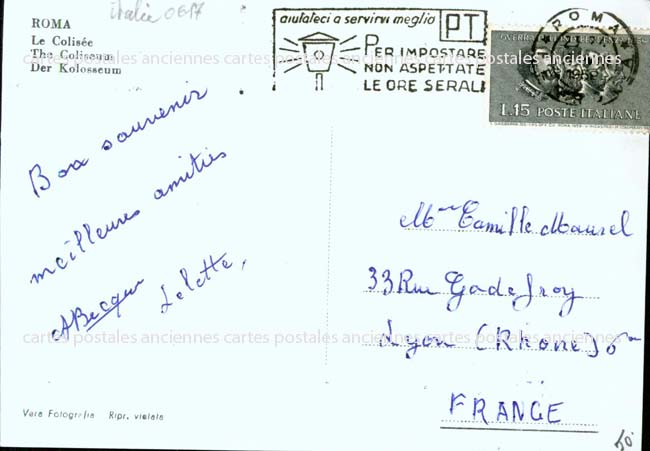 italie 0617
ROMA
Le Colisée
The Coliseum
Der Kolosseum
aiutateci a servirvi meglio
PT
PER IMPOSTARE
NON ASPETTATE
LE ORE SERALI
ROMA
1959
L.15 POSTE ITALIANE
Bon souvenir
meilleures amitiés
Lolotte,
ABecque
Mme Camille Maurel
33 Rue Godefroy
Lyon (Rhone) 6me
FRANCE
Vera Fotografia Ripr. vietata
50.
cartes postales anciennes cartes postales anciennes cartes postales anciennes
cartes postales anciennes cartes postales anciennes cartes postales anciennes